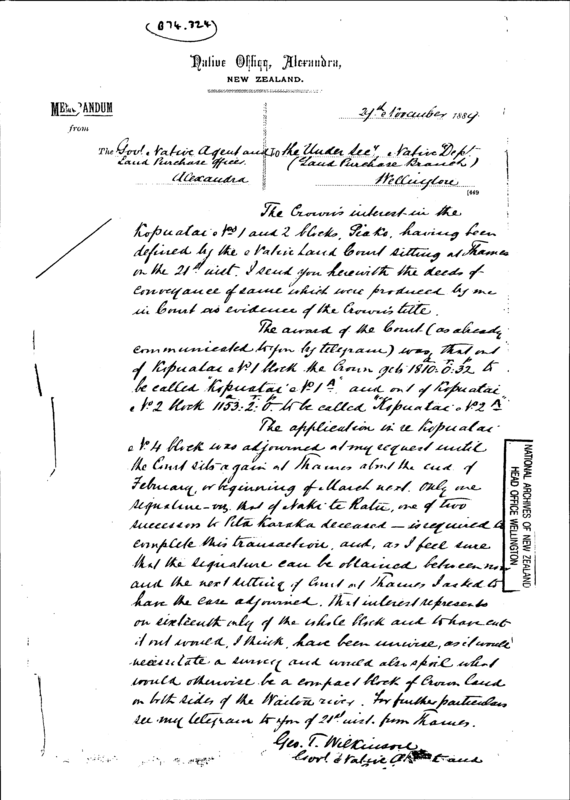 (B74.324)
Native Office, Alexandra,
NEW ZEALAND.
MEMORANDUM
from
27th November 1889
The Govt. Native Agent and
Land Purchase Officer
Alexandra
To the Under Secy Native Dept.
(Land Purchase Branch)
Wellington
The Crown's interest in the
Kopuatai Nos 1 and 2 blocks, Piako, having been
defined by the Native Land Court sitting at Thames
on the 21st inst. I send you herewith the deeds of
conveyance of same which were produced by me
in Court as evidence of the Crown's title.
The award of the Court (as already
communicated to you by telegram) was, that out
of Kopuatai No 1 block the Crown gets 1810: 0: 32 to
be called "Kopuatai No 1 A" and out of Kopuatai
No 2 block 1153: 2: 0. to be called "Kopuatai No 2 A"
The application in re Kopuatai
No 4 block was adjourned at my request until
the Court sits again at Thames about the end of
February or beginning of March next. Only one
signature – viz, that of Naki te Ratu, one of two
successors to Pita Karaka deceased – is required to
complete this transaction, and, as I feel sure
that the signature can be obtained between now
and the next sitting of Court at Thames I asked to
have the case adjourned. That interest represents
on sixteenth only of the whole block and to have cut
it out would, I think, have been unwise, as it would
necessitate a survey and would also spoil what
would otherwise be a compact block of Crown land
on both sides of the Waitoa river. For further particulars
see my telegram to you of 21st inst. from Thames.
Geo. T. Wilkinson
Govt Native and
NATIONAL ARCHIVES OF NEW ZEALAND
HEAD OFFICE WELLINGTON